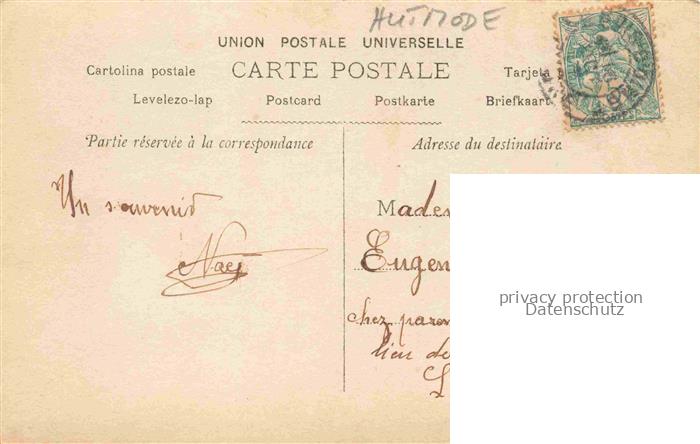 UNION POSTALE UNIVERSELLE
Cartolina postale CARTE POSTALE Tarjeta
Levelezo-lap Postcard Postkarte Briefkaart
Partie réservée à la correspondance
Adresse du destinataire
Un souvenir
Mades
Eugen
chez paren
lieu de
privacy protection
Datenschutz